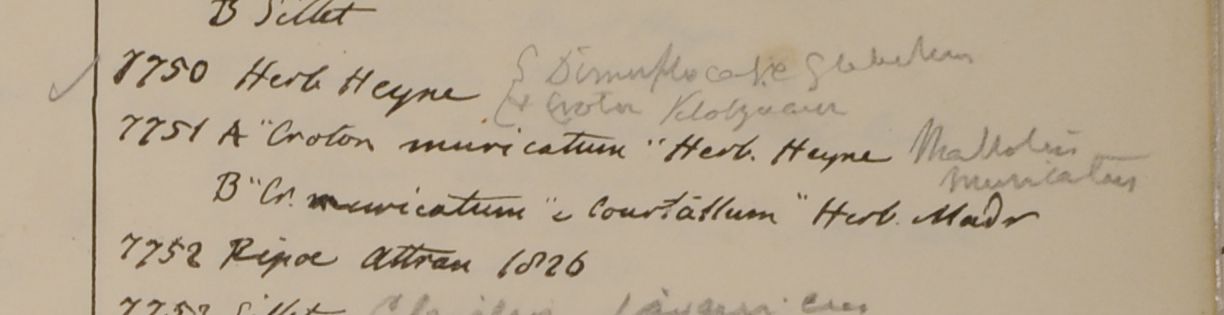 B Sillet
7750 Herb. Heyne
& Croton Klotzschianus
7751 A "Croton muricatum" Herb. Heyne Mallotus
muricatus
B "Cr. muricatum" e Courtallum" Herb. Madr
7752 Ripae Attran 1826
7753 Sillet